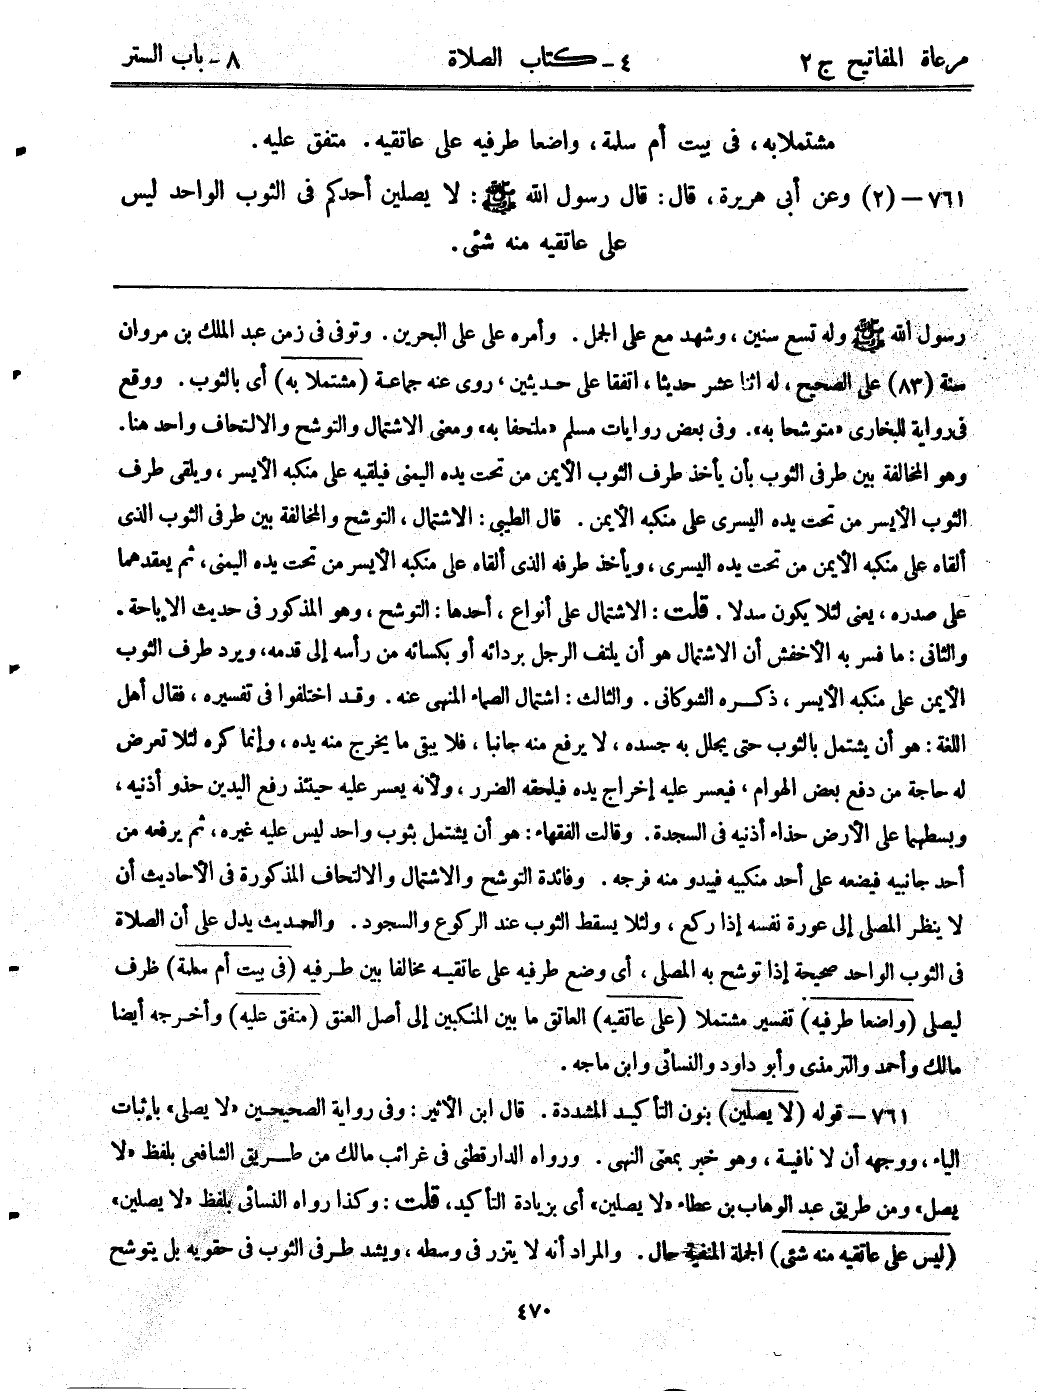 مرعاة المفاتيح ج ٢ ٤ - كتاب الصلاة ٨ - باب الستر
مشتملا به، فى بيت أم سلمة، واضعا طرفيه على عاتقيه. متفق عليه.
٧٦١ – (٢) وعن أبى هريرة، قال: قال رسول الله ﷺ: لا يصلين أحدكم فى الثوب الواحد ليس
على عاتقيه منه شئى.
رسول الله ﷺ وله تسع سنين، وشهد مع على الجمل. وأمره على على البحرين. وتوفى فى زمن عبد الملك بن مروان
سنة (٨٣) على الصحيح، له اثنا عشر حديثا، اتفقا على حديثين، روى عنه جماعة (مشتملا به) أى بالثوب. ووقع
فى رواية للبخارى «متوشحا به». وفى بعض روايات مسلم «ملتحفا به» ومعنى الاشتمال والتوشح والالتحاف واحد هنا.
وهو المخالفة بين طرفى الثوب بأن يأخذ طرف الثوب الأيمن من تحت يده اليمنى فيلقيه على منكبه الأيسر، ويلقى طرف
الثوب الأيسر من تحت يده اليسرى على منكبه الأيمن. قال الطيبى: الاشتمال، التوشح والمخالفة بين طرفى الثوب الذى
ألقاه على منكبه الأيمن من تحت يده اليسرى، ويأخذ طرفه الذى ألقاه على منكبه الأيسر من تحت يده اليمنى، ثم يعقدهما
على صدره، يعنى لئلا يكون سدلا. قلت: الاشتمال على أنواع، أحدها: التوشح، وهو المذكور فى حديث الإباحة.
والثانى: ما فسر به الأخفش أن الاشتمال هو أن يلتف الرجل بردائه أو بكسائه من رأسه إلى قدمه، ويرد طرف الثوب
الأيمن على منكبه الأيسر، ذكره الشوكانى. والثالث: اشتمال الصماء المنهى عنه. وقد اختلفوا فى تفسيره، فقال أهل
اللغة: هو أن يشتمل بالثوب حتى يجلل به جسده، لا يرفع منه جانبا، فلا يبقى ما يخرج منه يده، وإنما كره لئلا تعرض
له حاجة من دفع بعض الهوام، فيعسر عليه إخراج يده فيلحقه الضرر، ولأنه يعسر عليه حينئذ رفع اليدين حذو أذنيه،
وبسطهما على الأرض حذاء أذنيه فى السجدة. وقالت الفقهاء: هو أن يشتمل بثوب واحد ليس عليه غيره، ثم يرفعه من
أحد جانبيه فيضعه على أحد منكبيه فيبدو منه فرجه. وفائدة التوشح والاشتمال والالتحاف المذكورة فى الأحاديث أن
لا ينظر المصلى إلى عورة نفسه إذا ركع، ولئلا يسقط الثوب عند الركوع والسجود. والحديث يدل على أن الصلاة
فى الثوب الواحد صحيحة إذا توشح به المصلى، أى وضع طرفيه على عاتقيه مخالفا بين طرفيه (فى بيت أم سلمة) ظرف
ليصلى (واضعا طرفيه) تفسير مشتملا (على عاتقيه) العاتق ما بين المنكبين إلى أصل العنق (متفق عليه) وأخرجه أيضا
مالك وأحمد والترمذى وأبو داود والنسائى وابن ماجه.
٧٦١ – قوله (لا يصلين) بنون التأكيد المشددة. قال ابن الأثير: وفى رواية الصحيحين «لا يصلى» بإثبات
الياء، ووجهه أن لا نافية، وهو خبر بمعنى النهى. ورواه الدارقطنى فى غرائب مالك من طريق الشافعى بلفظ «لا
يصل» ومن طريق عبد الوهاب بن عطاء «لا يصلين» أى بزيادة التأكيد، قلت: وكذا رواه النسائى بلفظ «لا يصلين»
(ليس على عاتقيه منه شئى) الجملة المنفية حال. والمراد أنه لا يتزر فى وسطه، ويشد طرفى الثوب فى حقويه بل يتوشح
٤٧٠